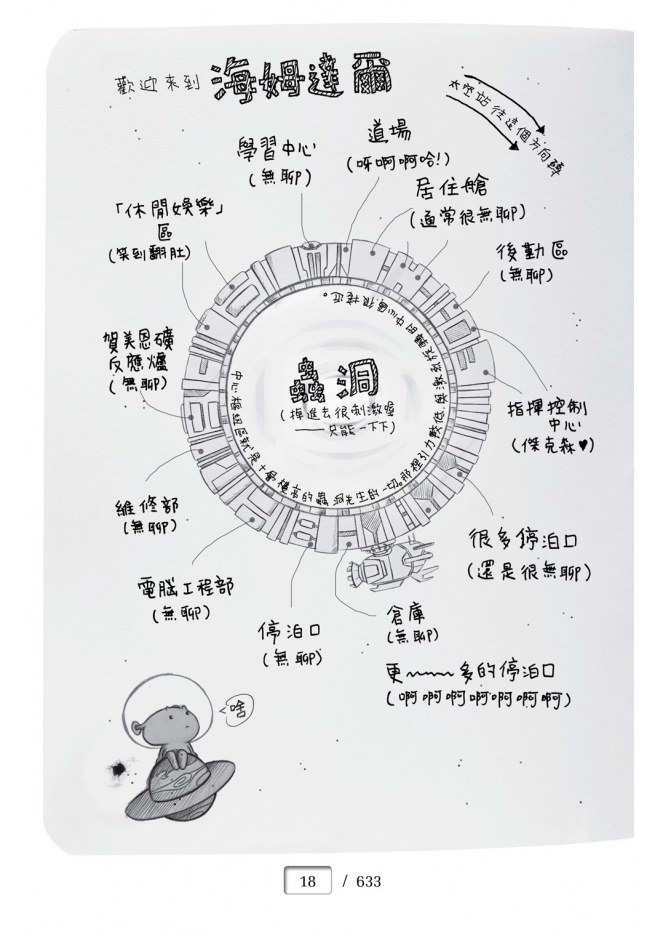 歡迎來到 海姆達爾
太空站往這個方向轉
道場
(呀啊啊哈!)
學習中心
(無聊)
居住艙
(通常很無聊)
「休閒娛樂」
區
(笑到翻肚)
後勤區
(無聊)
賀美恩礦
反應爐
(無聊)
蟲洞
(掉進去很刺激喔
——只能一下下)
中心樞紐區就是
的蟲洞先生的一切。那裡引力較低,
中心
很接近。
指揮控制
中心
(傑克森♥)
維修部
(無聊)
很多停泊口
(還是很無聊)
電腦工程部
(無聊)
停泊口
(無聊)
倉庫
(無聊)
更~~~多的停泊口
(啊啊啊啊啊啊啊)
啥
18 / 633